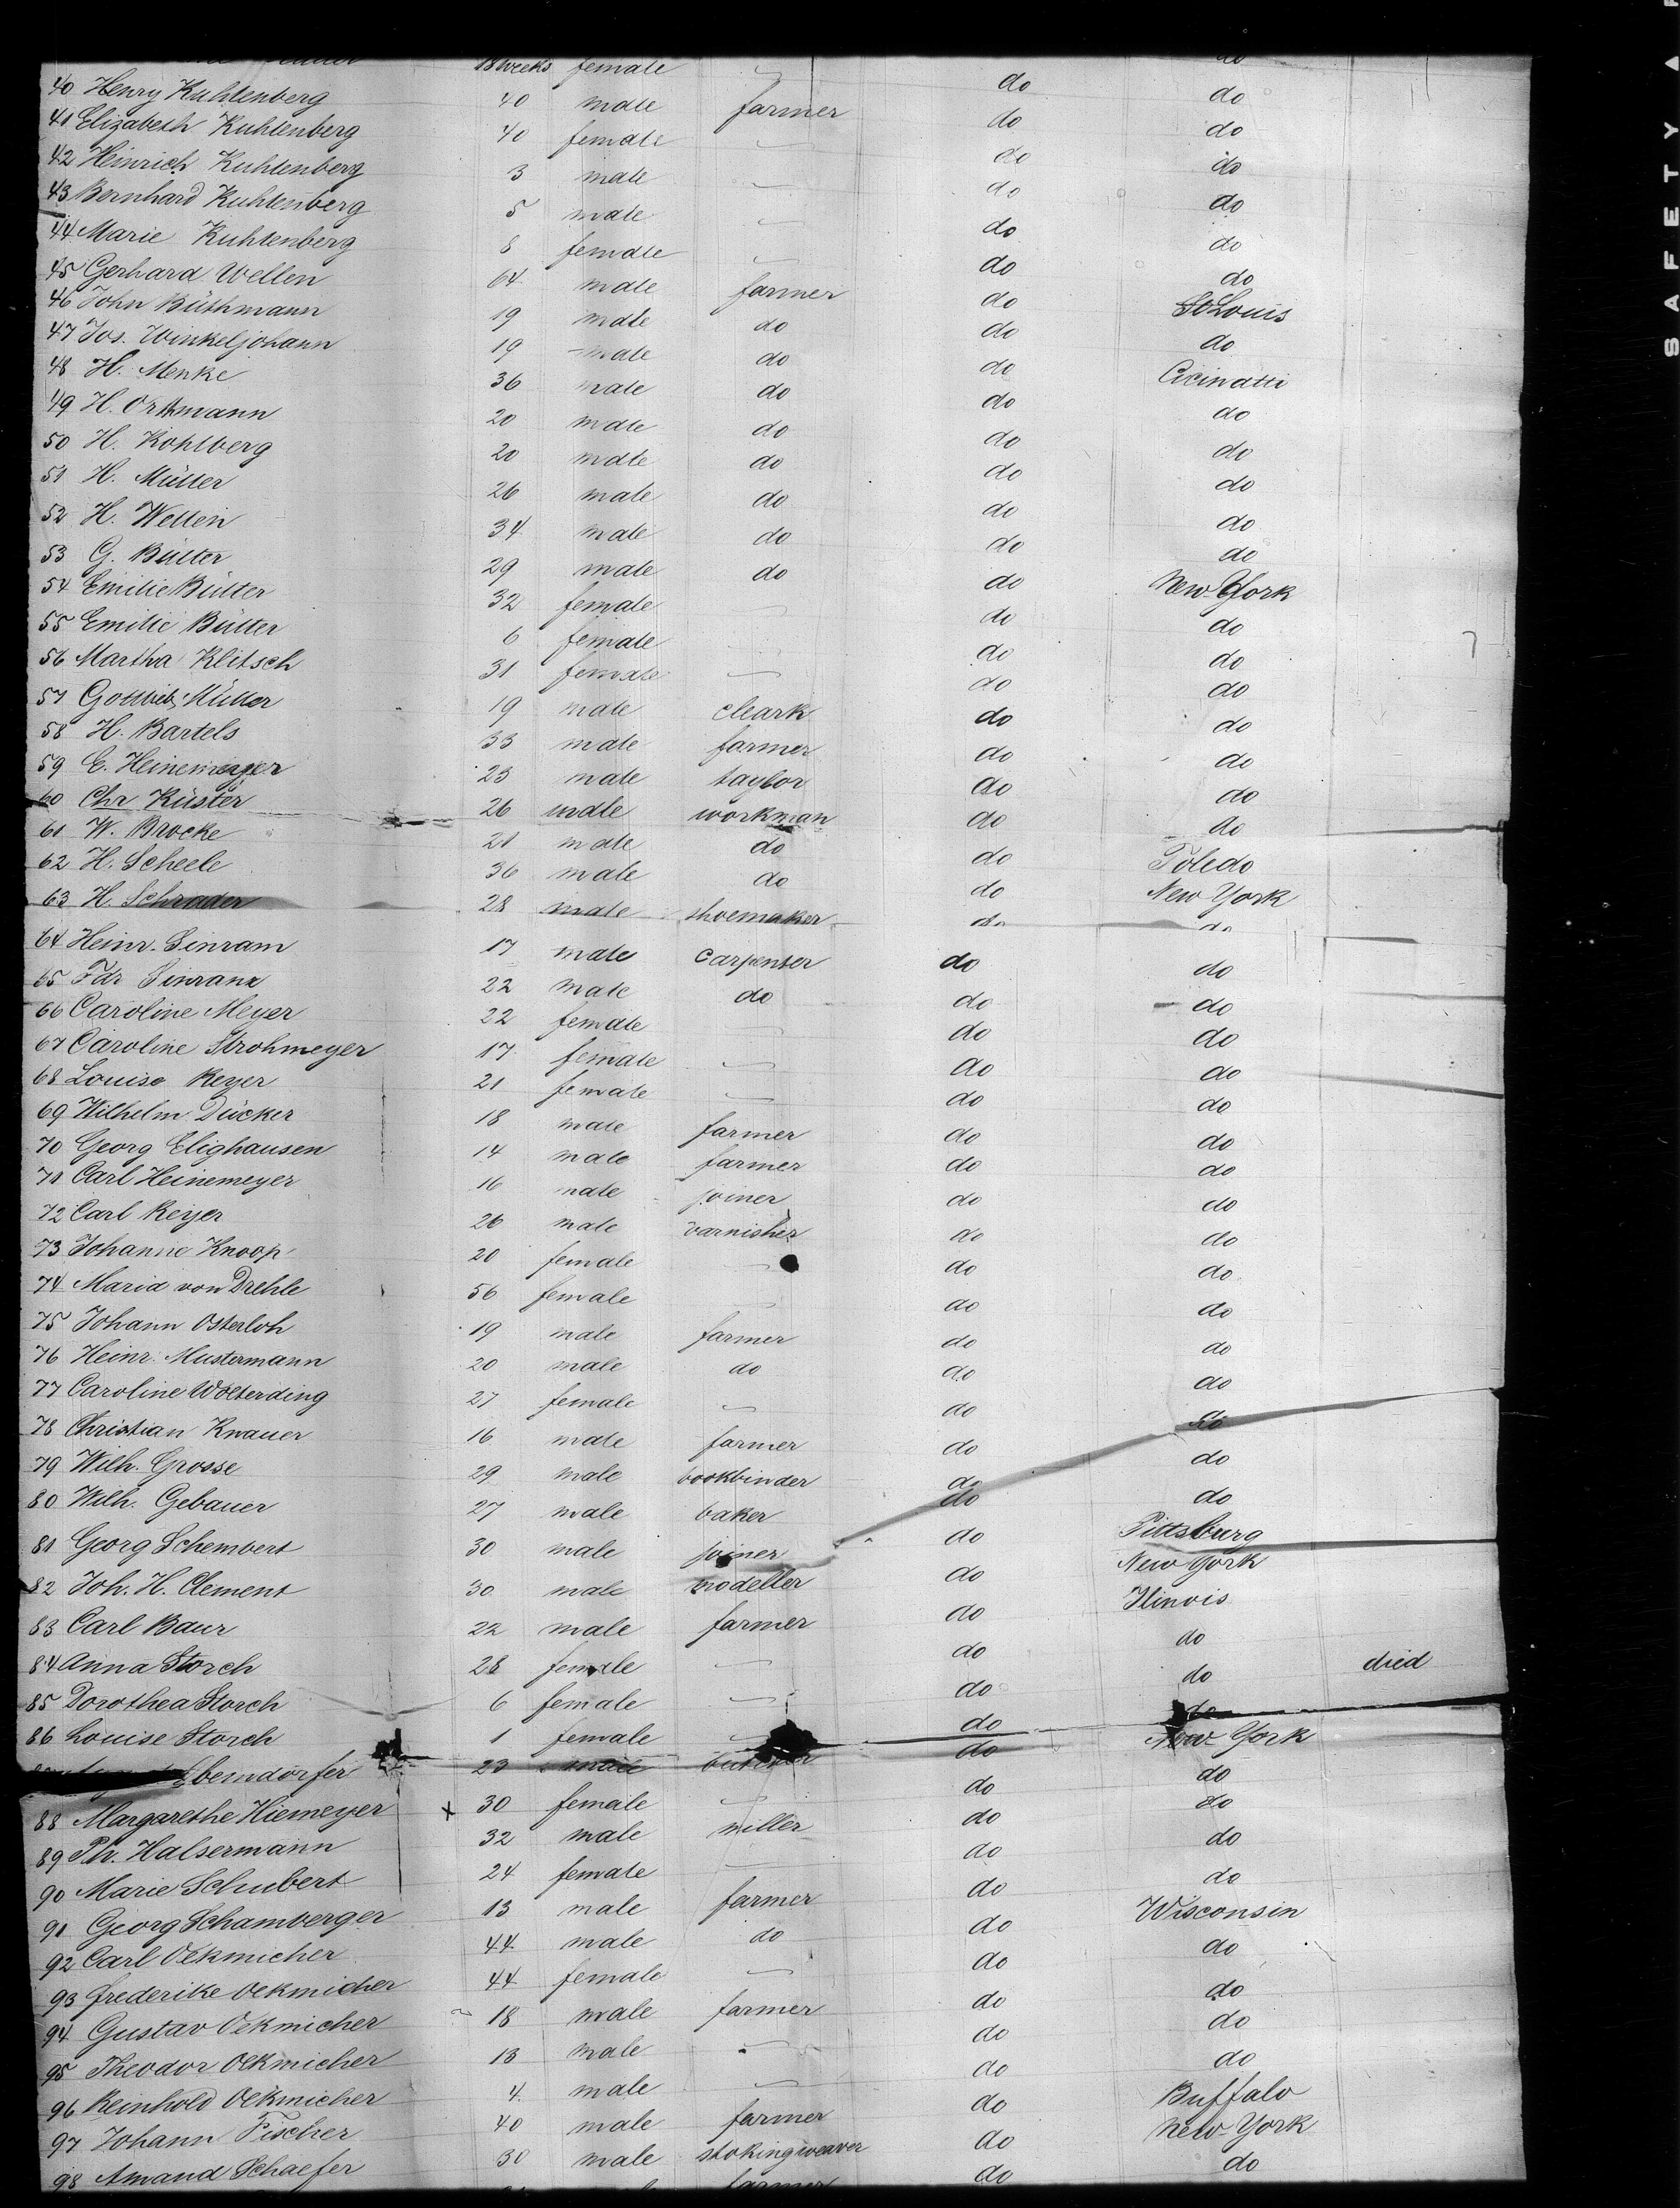 18 weeks female do
40 Henry Kuhlenberg 40 male farmer do do
41 Elizabeth Kuhlenberg 40 female do do
42 Heinrich Kuhlenberg 3 male do do
43 Bernhard Kuhlenberg 5 male do do
44 Marie Kuhlenberg 8 female do do
45 Gerhard Wellen 64 male farmer do do
46 John Büthmann 19 male do do St Louis
47 Jos. Winkeljohann 19 male do do do
48 H. Menke 36 male do do Cicinatti
49 H. Ortmann 20 male do do do
50 H. Kohlberg 20 male do do do
51 H. Müller 26 male do do do
52 H. Wellen 34 male do do do
53 G. Bülter 29 male do do do
54 Emilie Bülter 32 female do New-York
55 Emilie Bülter 6 female do do
56 Martha Klitsch 31 female do do
57 Gottlieb Müller 19 male cleark do do
58 H. Bartels 33 male farmer do do
59 E. Heinemeyer 23 male taylor do do
60 Chr Küster 26 male workman do do
61 W. Brocke 21 male do do do
62 H. Scheele 36 male do do Toledo
63 H. Schrader 28 male shoemaker do New York
do do
64 Heinr. Sinram 17 male carpenter do do
65 Fdr Sinram 22 male do do do
66 Caroline Meyer 22 female do do
67 Caroline Strohmeyer 17 female do do
68 Louise Reyer 21 female do do
69 Wilhelm Dücker 18 male farmer do do
70 Georg Elighausen 14 male farmer do do
71 Carl Heinemeyer 16 male joiner do do
72 Carl Reyer 26 male varnisher do do
73 Johanne Knoop 20 female do do
74 Maria von Drehle 56 female do do
75 Johann Osterloh 19 male farmer do do
76 Heinr. Mustermann 20 male do do do
77 Caroline Wolterding 27 female do do
78 Christian Knauer 16 male farmer do do
79 Wilh. Grosse 29 male bookbinder do do
80 Wilh. Gebauer 27 male baker do do
81 Georg Schembert 30 male joiner do Pittsburg
82 Joh. H. Clement 30 male modeller do New York
83 Carl Baur 22 male farmer do Ilinois
84 Anna Storch 28 female do do
85 Dorothea Storch 6 female do do died
86 Louise Storch 1 female do do
Eberndorfer 23 male butcher do New-York
88 Margarethe Hiemeyer x 30 female do do
89 Ph. Halsermann 32 male miller do do
90 Marie Schubert 24 female do do
91 Georg Schamberger 13 male farmer do do
92 Carl Oekmicher 44 male do do Wisconsin
93 Frederike Oekmicher 44 female do do
94 Gustav Oekmicher 18 male farmer do do
95 Theodor Oekmicher 13 male do do
96 Reinhold Oekmicher 4 male do do
97 Johann Fischer 40 male farmer do Buffalo
98 Amand Schaefer 30 male stokingweaver do New-York
farmer do do
SAFETY